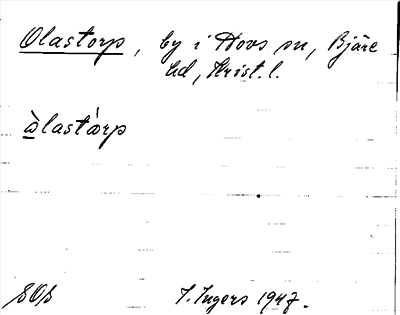 Olastorp, by i Hovs sn, Bjäre
hd, Krist. l.
òlastá̊rp
SOb
I. Ingers 1947.